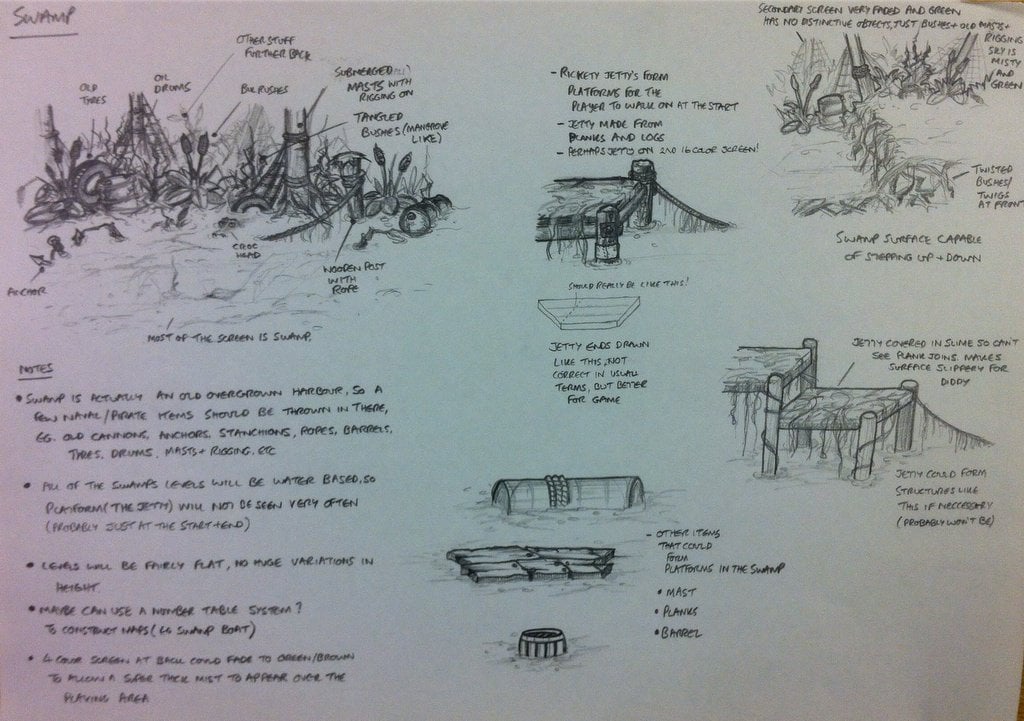 SWAMP
OTHER STUFF
FURTHER BACK
OLD
TYRES
OIL
DRUMS
BULRUSHES
SUBMERGED
MASTS WITH
RIGGING ON
TANGLED
BUSHES (MANGROVE
LIKE)
ANCHOR
CROC
HEAD
WOODEN POST
WITH
ROPE
MOST OF THE SCREEN IS SWAMP.
- RICKETY JETTY'S FORM
PLATFORMS FOR THE
PLAYER TO WALK ON AT THE START
- JETTY MADE FROM
PLANKS AND LOGS
- PERHAPS JETTY ON 2ND 16 COLOR SCREEN!
SHOULD REALLY BE LIKE THIS!
JETTY ENDS DRAWN
LIKE THIS, NOT
CORRECT IN USUAL
TERMS, BUT BETTER
FOR GAME
SECONDARY SCREEN VERY FADED AND GREEN
HAS NO DISTINCTIVE OBJECTS, JUST BUSHES + OLD MASTS +
RIGGING
SKY IS
MISTY
AND
GREEN
TWISTED
BUSHES/
TWIGS
AT FRONT
SWAMP SURFACE CAPABLE
OF STEPPING UP + DOWN
JETTY COVERED IN SLIME SO CAN'T
SEE PLANK JOINS. MAKES
SURFACE SLIPPERY FOR
DIDDY
JETTY COULD FORM
STRUCTURES LIKE
THIS IF NECCESSARY
(PROBABLY WON'T BE)
NOTES
• SWAMP IS ACTUALLY AN OLD OVERGROWN HARBOUR, SO A
FEW NAVAL/PIRATE ITEMS SHOULD BE THROWN IN THERE,
EG. OLD CANNONS, ANCHORS, STANCHIONS, ROPES, BARRELS,
TYRES, DRUMS, MASTS + RIGGING, ETC
• ALL OF THE SWAMPS LEVELS WILL BE WATER BASED, SO
PLATFORM (THE JETTY) WILL NOT BE SEEN VERY OFTEN
(PROBABLY JUST AT THE START + END)
• LEVELS WILL BE FAIRLY FLAT, NO HUGE VARIATIONS IN
HEIGHT.
• MAYBE CAN USE A NUMBER TABLE SYSTEM?
TO CONSTRUCT MAPS (EG SWAMP BOAT)
• 4 COLOR SCREEN AT BACK COULD FADE TO GREEN/BROWN
TO ALLOW A SUPER THICK MIST TO APPEAR OVER THE
PLAYING AREA
- OTHER ITEMS
THAT COULD
FORM
PLATFORMS IN THE SWAMP
• MAST
• PLANKS
• BARREL